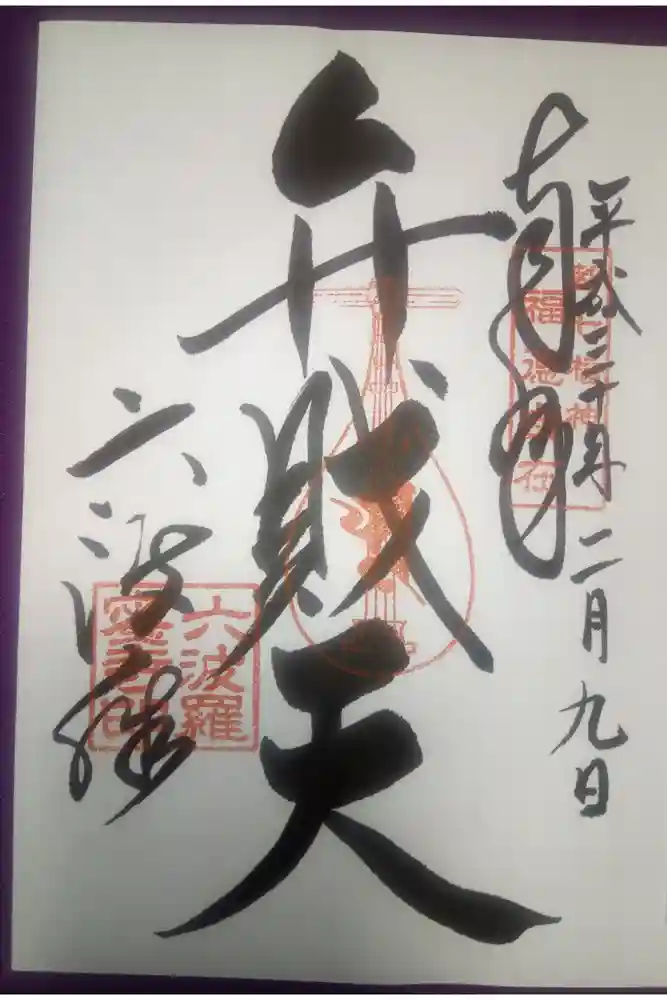 奉拝
平成三十年二月九日
弁財天
六波羅
都七福神
福徳自在
六波羅